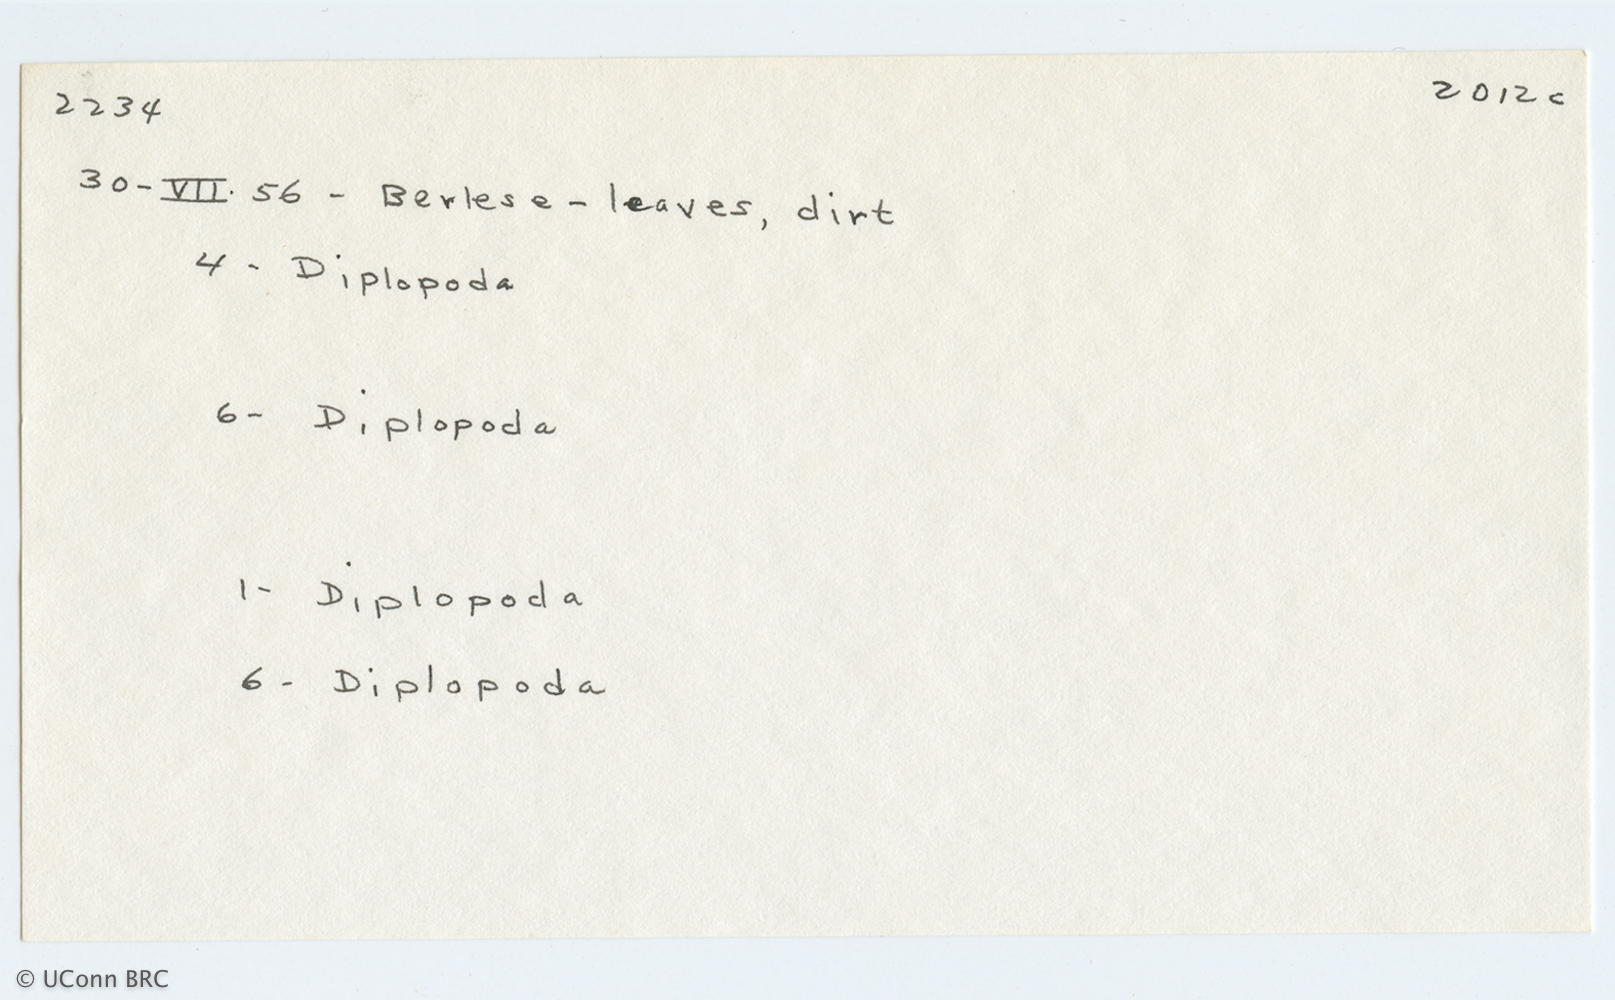 2234 2012c
30-VII.56 - Berlese - leaves, dirt
4 - Diplopoda
6 - Diplopoda
1 - Diplopoda
6 - Diplopoda
© UConn BRC